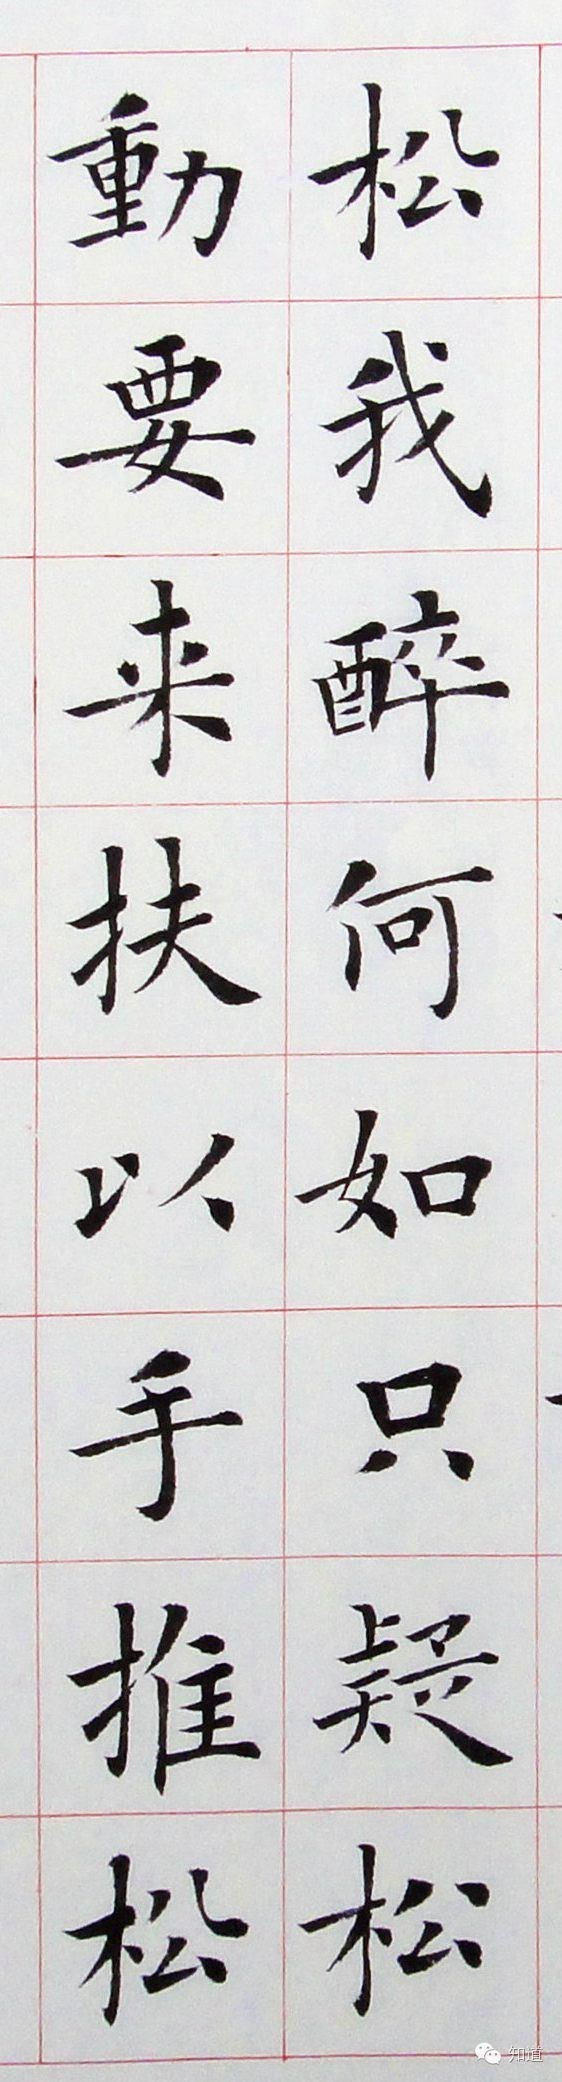 松我醉何如只疑松
動要来扶以手推松
知道